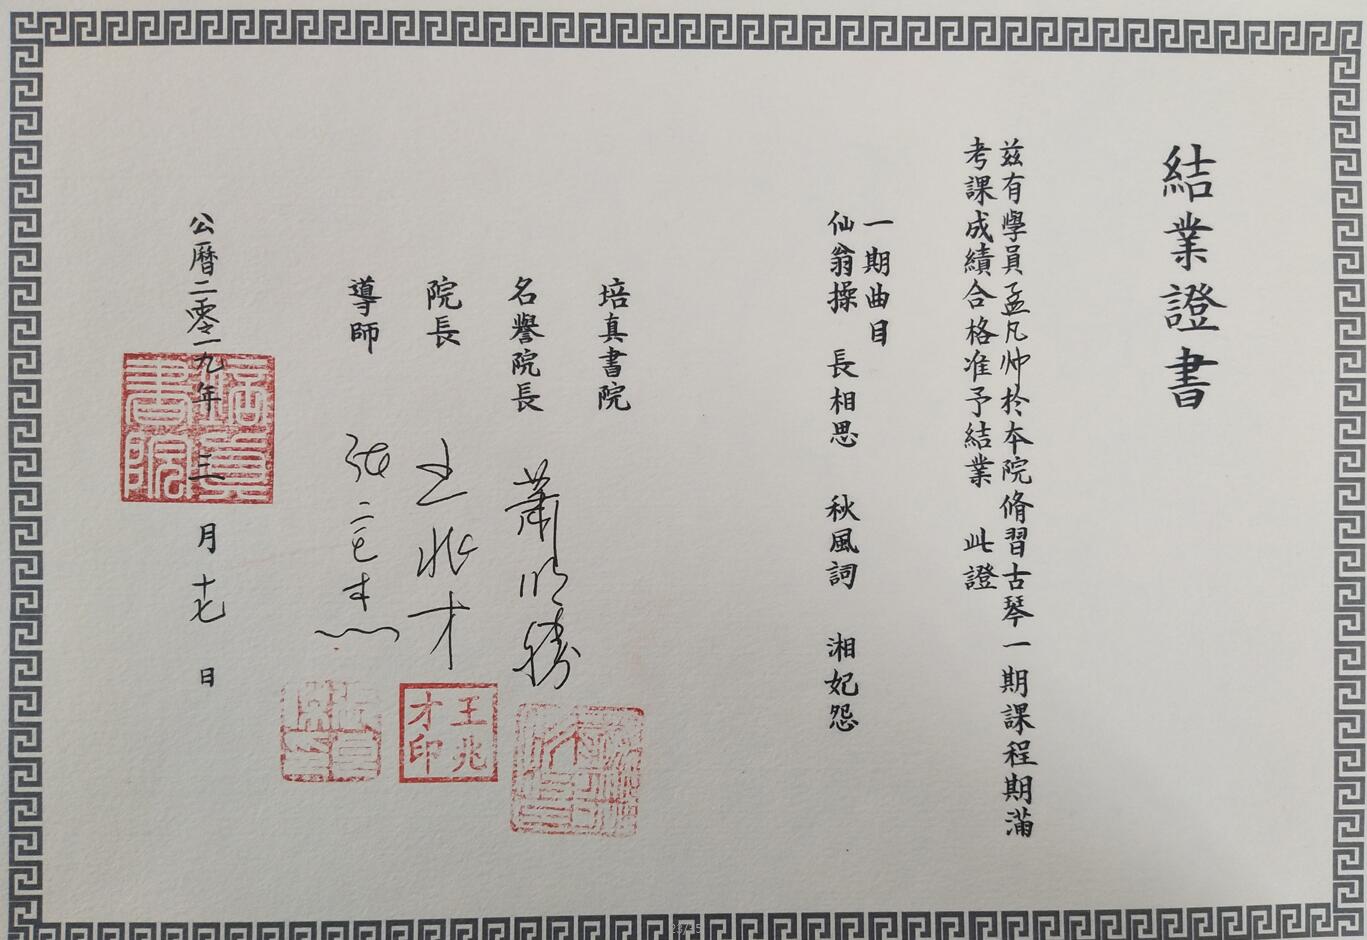 結業證書
茲有學員孟凡帅於本院脩習古琴一期課程期滿
考課成績合格准予結業 此證
一期曲目
仙翁操 長相思 秋風詞 湘妃怨
培真書院
名譽院長 蕭明勝
院長 王兆才
導師
公曆二零一九年 三 月 十七 日
培真書院
王兆才印